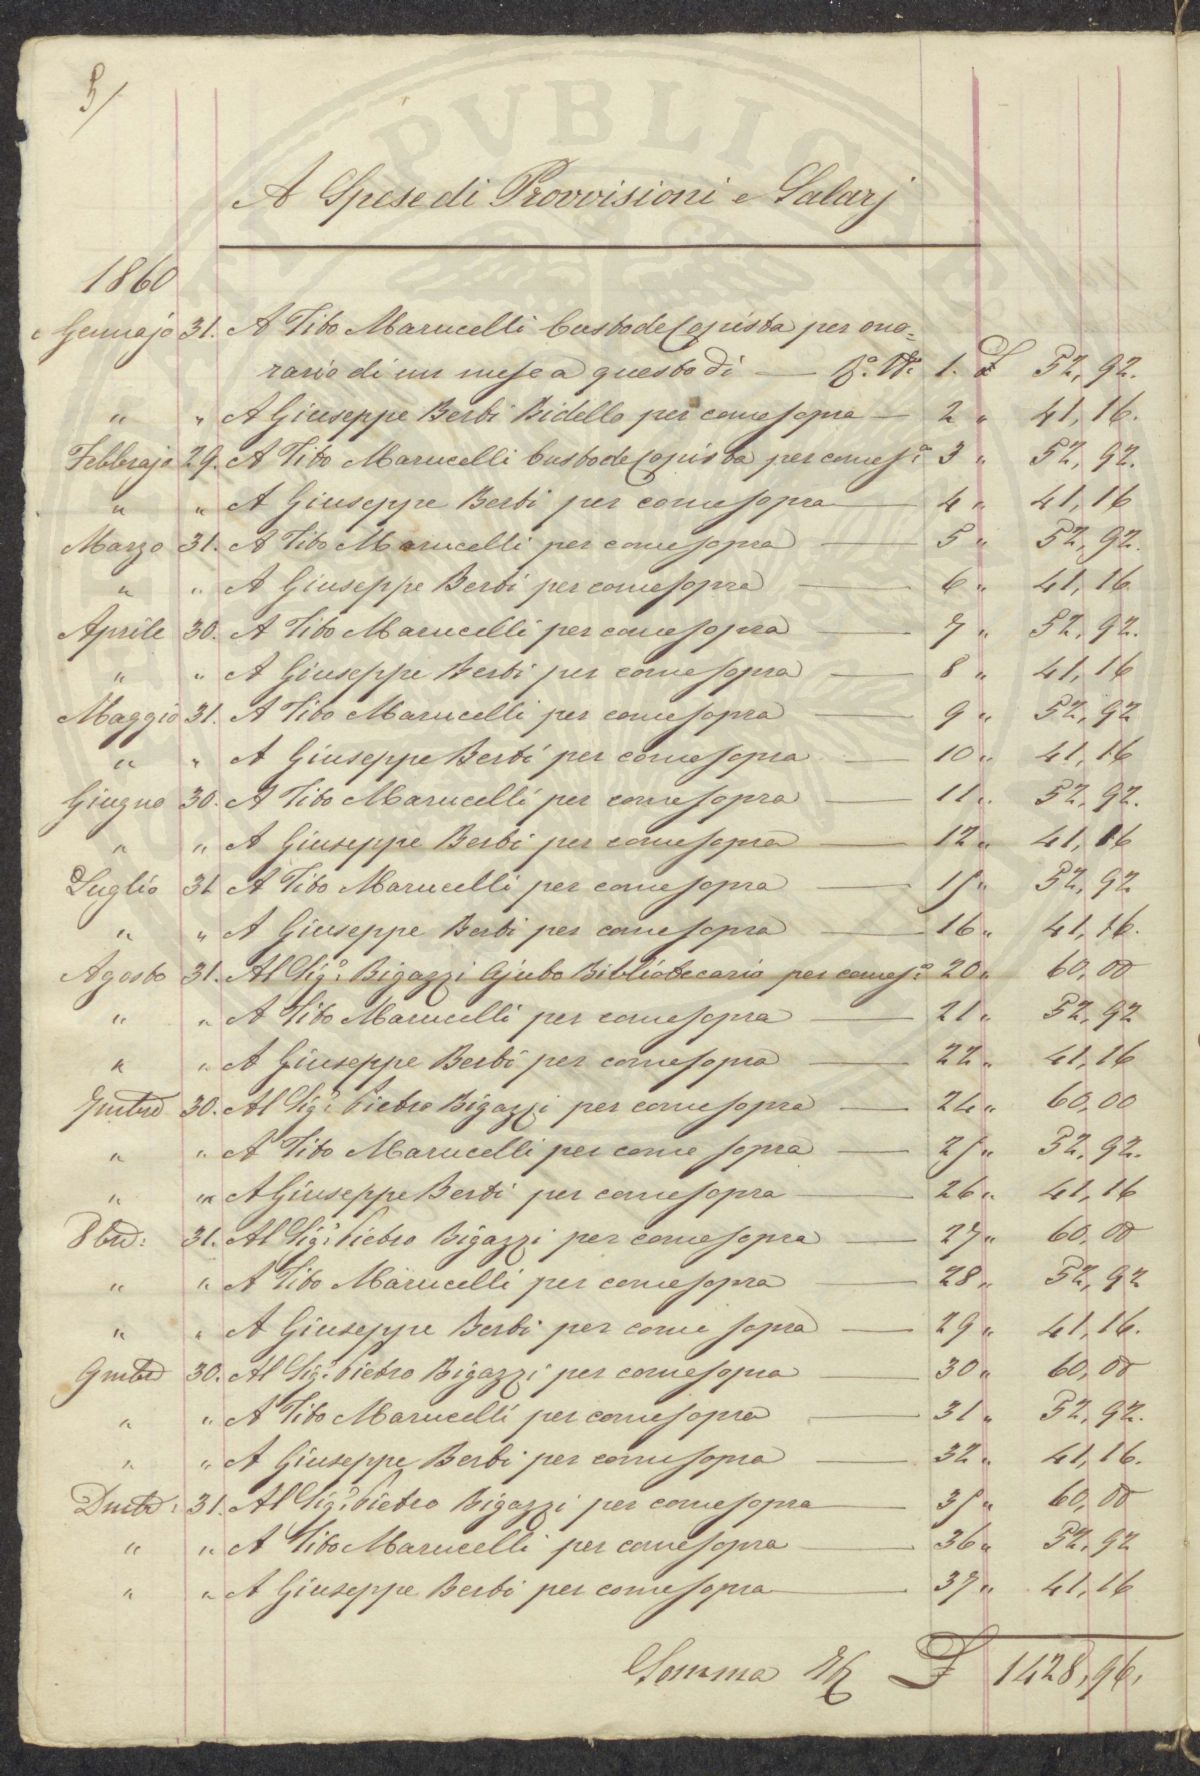 5/
A Spese di Provvisioni e Salarj
1860
Gennajo 31. A Tito Marucelli Custode Copista per ono=
rario di un mese a questo dì — 1. £ 52, 92.
" " A Giuseppe Berti Bidello per come sopra — 2 " 41, 16.
Febbrajo 29. A Tito Marucelli Custode Copista per come sa 3 " 52, 92.
" " A Giuseppe Berti per come sopra — 4 " 41, 16
Marzo 31. A Tito Marucelli per come sopra — 5 " 52, 92.
" " A Giuseppe Berti per come sopra — 6 " 41, 16
Aprile 30. A Tito Marucelli per come sopra — 7 " 52, 92.
" " A Giuseppe Berti per come sopra — 8 " 41, 16
Maggio 31. A Tito Marucelli per come sopra — 9 " 52, 92
" " A Giuseppe Berti per come sopra — 10 " 41, 16
Giugno 30. A Tito Marucelli per come sopra — 11 " 52, 92.
" " A Giuseppe Berti per come sopra — 12 " 41, 16
Luglio 31 A Tito Marucelli per come sopra — 15 " 52, 92
" " A Giuseppe Berti per come sopra — 16 " 41, 16.
Agosto 31. Al Sigr. Bigazzi Ajuto Bibliotecario per come sa 20 " 60, 00
" " A Tito Marucelli per come sopra — 21 " 52, 92
" " A Giuseppe Berti per come sopra — 22 " 41, 16
7mbre 30. Al Sigr. Pietro Bigazzi per come sopra — 24 " 60, 00
" " A Tito Marucelli per come sopra — 25 " 52, 92.
" " A Giuseppe Berti per come sopra — 26 " 41, 16
8bre: 31. Al Sigr. Pietro Bigazzi per come sopra — 27 " 60, 00
" " A Tito Marucelli per come sopra — 28 " 52, 92
" " A Giuseppe Berti per come sopra — 29 " 41, 16.
9mbre 30. Al Sigr. Pietro Bigazzi per come sopra — 30 " 60, 00
" " A Tito Marucelli per come sopra — 31 " 52, 92.
" " A Giuseppe Berti per come sopra — 32 " 41, 16.
Dmbre: 31. Al Sigr. Pietro Bigazzi per come sopra — 35 " 60, 00
" " A Tito Marucelli per come sopra — 36 " 52, 92
" " A Giuseppe Berti per come sopra — 37 " 41, 16
Somma £ 1428, 96.